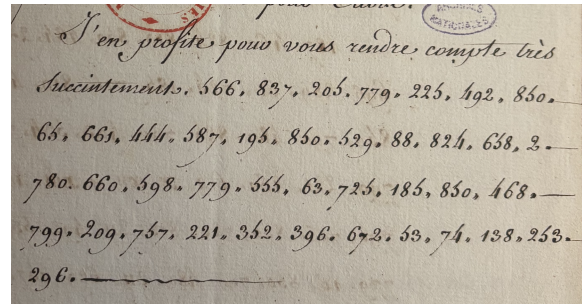 pour
J'en profite pour vous rendre compte très
succintement. 566. 837. 205. 779. 225. 492. 850.
65. 661. 444. 587. 195. 850. 529. 88. 824. 658. 2.
780. 660. 598. 779. 555. 63. 725. 185. 850. 468.
799. 209. 757. 221. 352. 396. 672. 53. 74. 138. 253.
296.